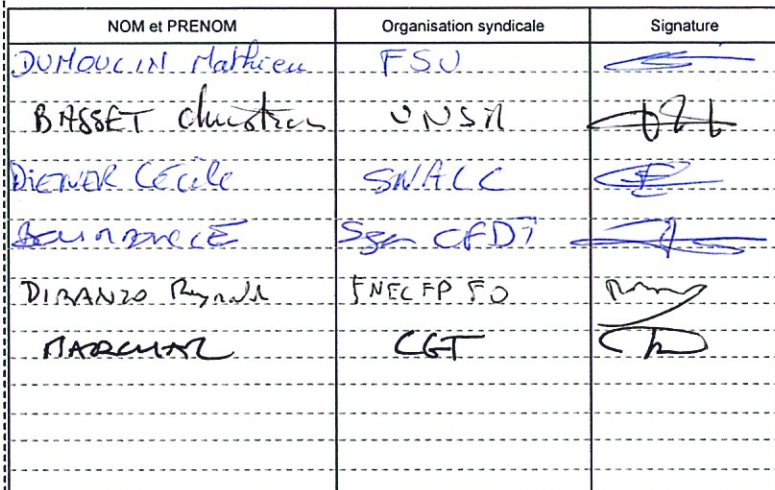 NOM et PRENOM Organisation syndicale Signature
DUMOULIN Mathieu FSU
BASSET Christian UNSA
DIENER Cécile SNALC
Sgen CFDT
DIRANZO FNEC FP FO
MARCHAL CGT